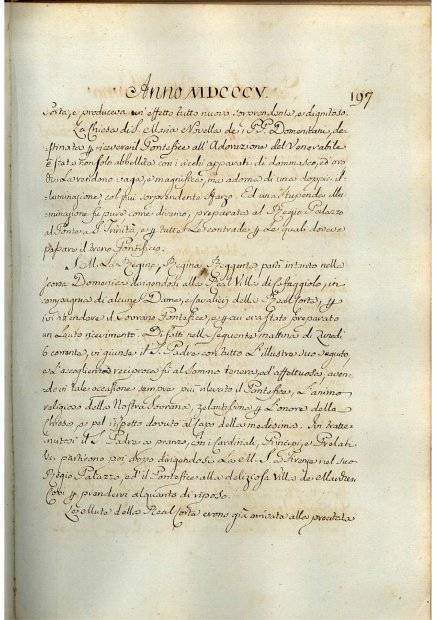 Anno MDCCCV.
197
Porta, e produceva un' effetto tutto nuovo sorprendente, e dignitoso.
La Chiesa di S. Maria Novella de i PP. Domenicani, de-
stinata a ricever il Pontefice all' Adorazione del Venerabile
è stata non solo abbellita con i ricchi apparati di dommasco, ed oro
che la rendono vaga, e magnifica, ma adorna di una doppia il-
luminazione col più sorprendente sfarzo. Ed una stupenda illu-
minazione fu pure come dicemo, preparata al Regio Palazzo
al Ponte a S. Trinita, e tutte le contrade, per le quali doveva
passare il treno Pontificio.
S. M. La Regina, Regina Reggente partì intanto nella
scorsa Domenica dirigendosi alla Real Villa di Cafaggiolo, in
compagnia di alcune Dame, e Cavalieri della Real Corte, per
ivi attendere il Sovrano Pontefice, per cui era stato preparato
un lauto ricevimento. Di fatti nella seguente mattina di Lunedì
6 corrente, vi giunse il S. Padre con tutto l'illustre suo seguito,
e l'accoglienza reciproca fu al sommo tenera, ed affettuosa, aven-
do in tale occasione sempre più rilevato il Pontefice, l'animo
religioso della Nostra Sovrana, zelantissima per l'onore della
Chiesa, e pel rispetto dovuto al Capo della medesima. Ivi tratte-
nutosi il S. Padre a pranzo, con i Cardinali, Principi, e Prelati
ec. partirono poi dopo dirigendosi La M. S. a Firenze nel suo
Regio Palazzo, ed il Pontefice alla deliziosa Villa de
per prendervi alquanto di riposo.
della Real Corte erano già arrivate alla prestabilita